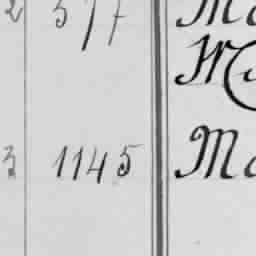 2 577 Ma
3 1145 Ma